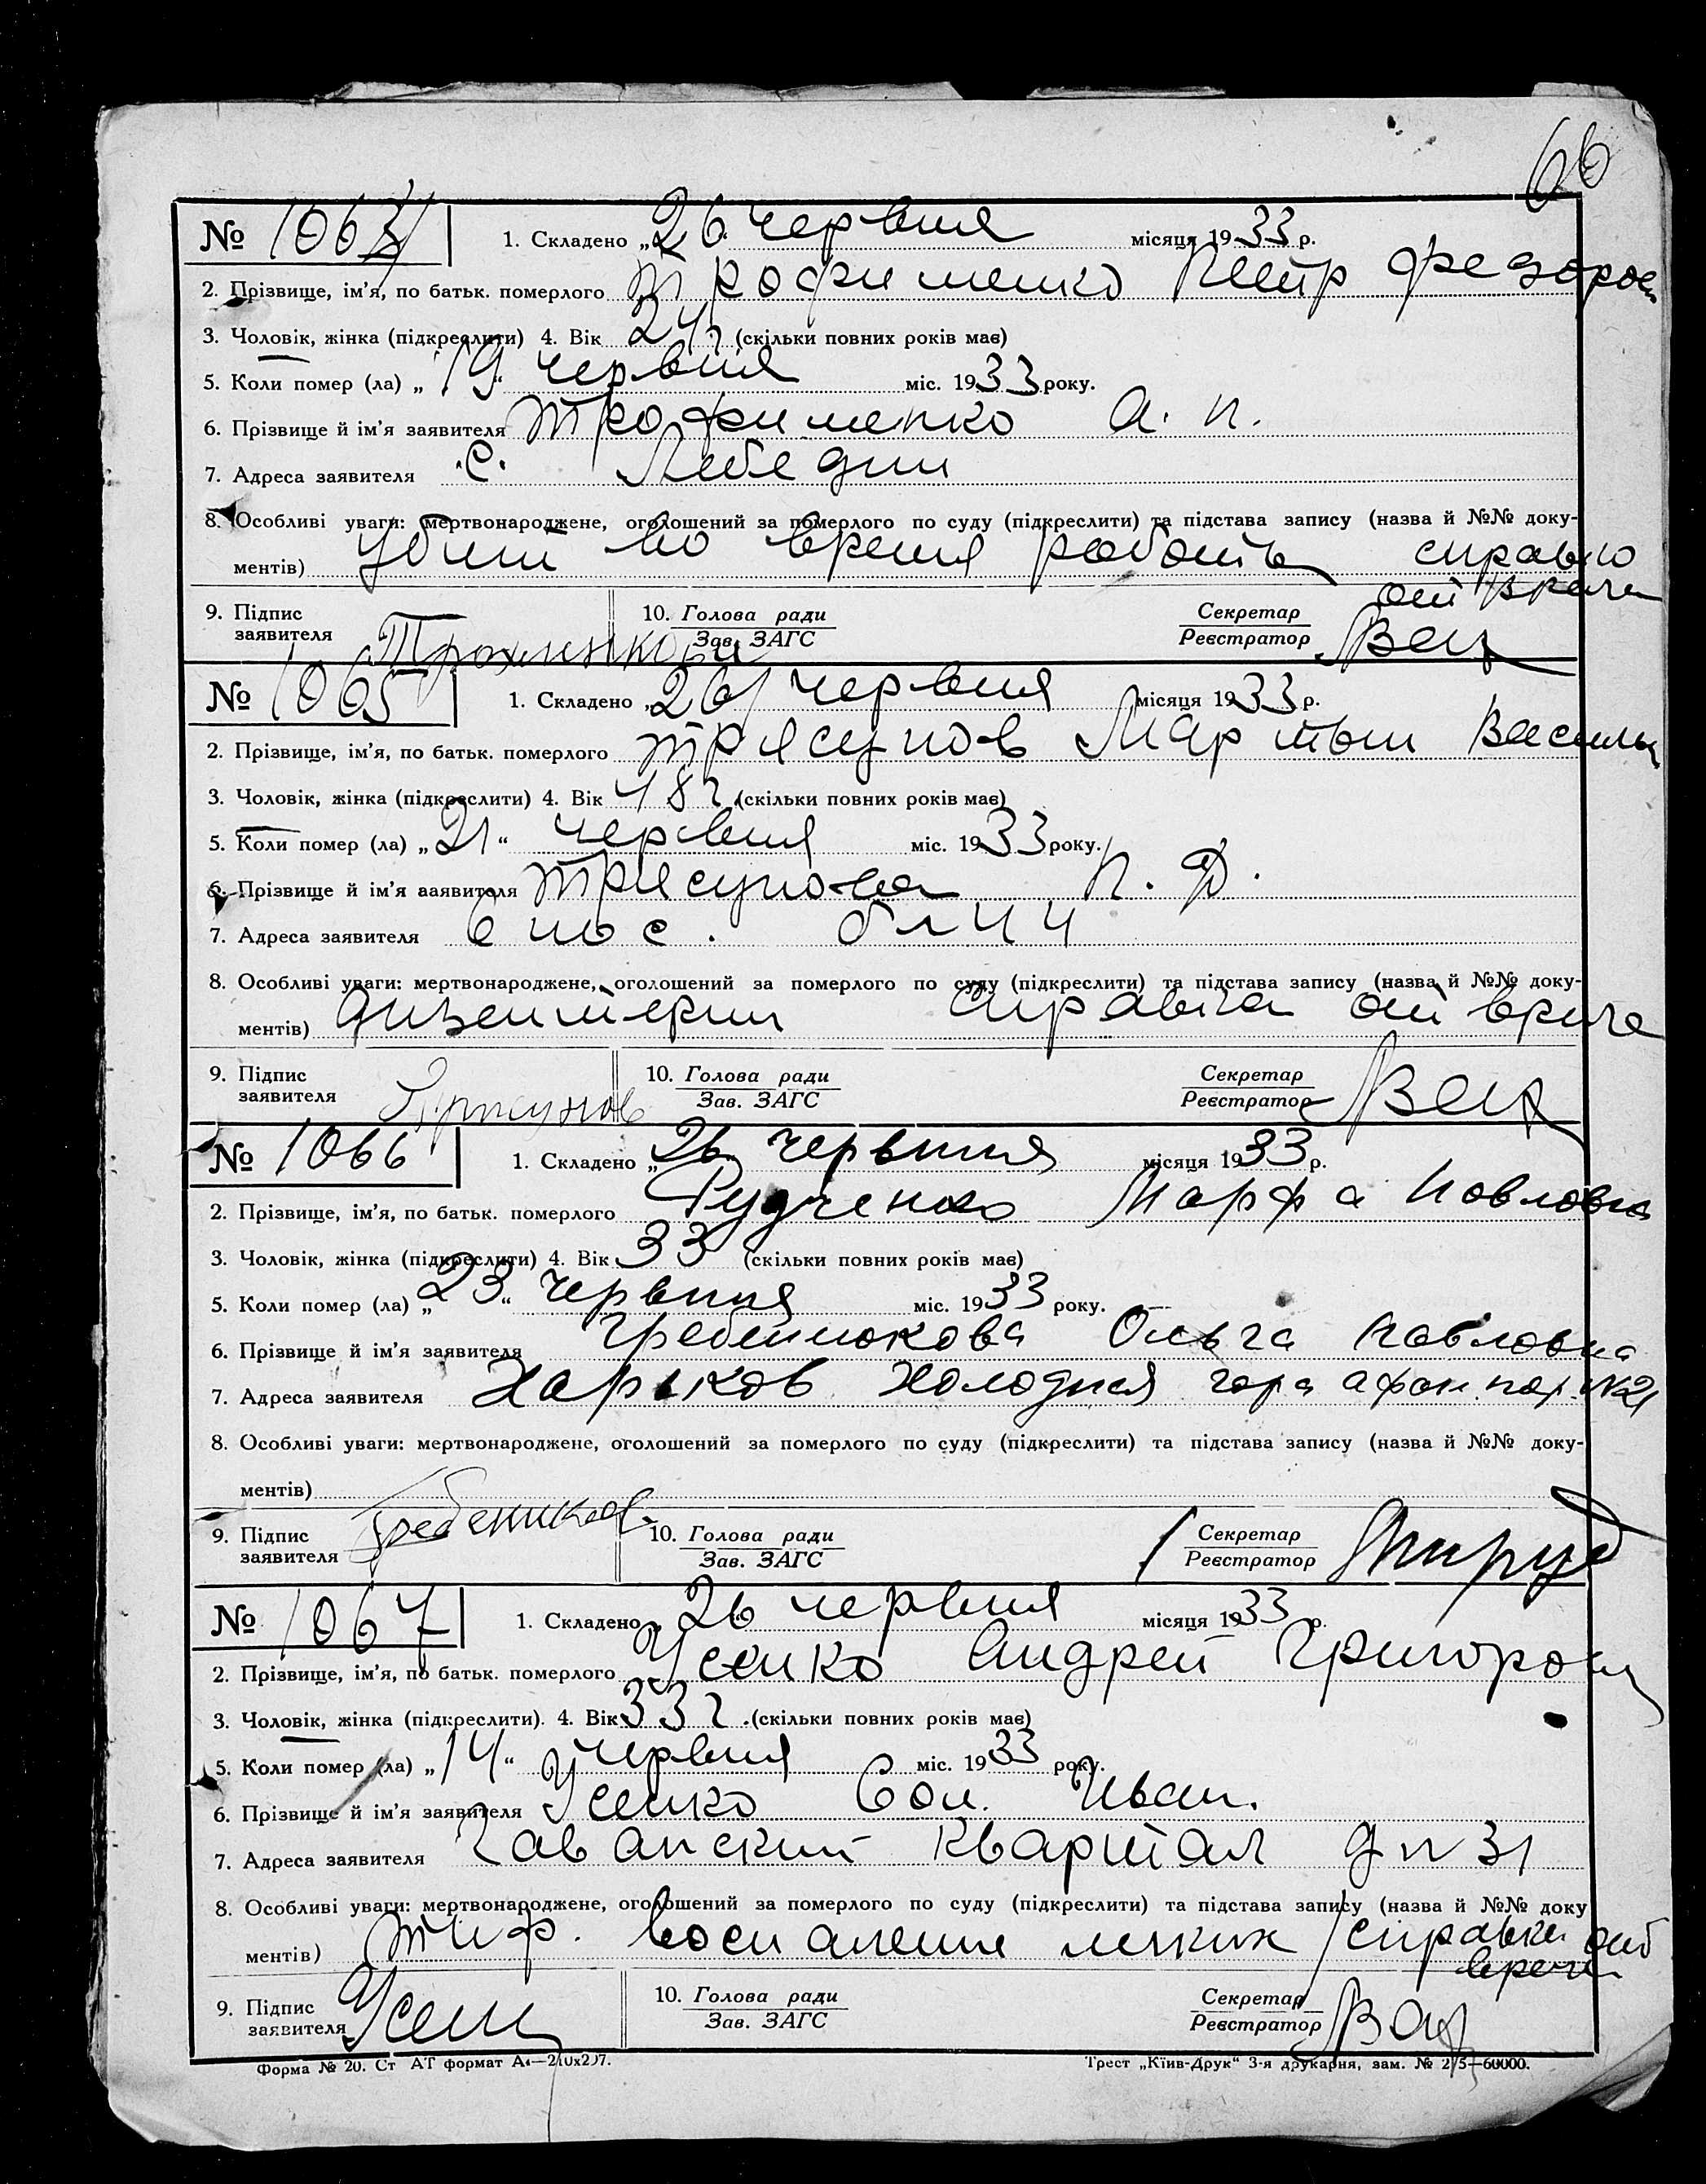 66
№ 1064 1. Складено „26“ червня місяця 1933 р.
2. Прізвище, ім’я, по батьк. померлого Трофименко Петр Федоров
3. Чоловік, жінка (підкреслити) 4. Вік 24 г (скільки повних років має)
5. Коли помер (ла) „19“ червня міс. 1933 року.
6. Прізвище й ім’я заявителя Трофименко А. П.
7. Адреса заявителя с. Лебедин
8. Особливі уваги: мертвонароджене, оголошений за померлого по суду (підкреслити) та підстава запису (назва й №№ доку-
ментів) убит во время работы справка
от врача
9. Підпис заявителя 10. Голова ради Зав. ЗАГС Секретар Реєстратор
№ 1065 1. Складено „26“ червня місяця 1933 р.
2. Прізвище, ім’я, по батьк. померлого Трясунов Мартын Василь
3. Чоловік, жінка (підкреслити) 4. Вік 48 г (скільки повних років має)
5. Коли помер (ла) „21“ червня міс. 1933 року.
6. Прізвище й ім’я заявителя Трясунова П. Ф.
7. Адреса заявителя
8. Особливі уваги: мертвонароджене, оголошений за померлого по суду (підкреслити) та підстава запису (назва й №№ доку-
ментів) дизентерии справка от врача
9. Підпис заявителя Трясунов 10. Голова ради Зав. ЗАГС Секретар Реєстратор
№ 1066 1. Складено „26“ червння місяця 1933 р.
2. Прізвище, ім’я, по батьк. померлого Рудченко Марфа Повловна
3. Чоловік, жінка (підкреслити) 4. Вік 33 (скільки повних років має)
5. Коли помер (ла) „23“ червння міс. 1933 року.
6. Прізвище й ім’я заявителя Гребенюкова Ольга Повловна
7. Адреса заявителя Харьков Холодная гора афон. пор. №21
8. Особливі уваги: мертвонароджене, оголошений за померлого по суду (підкреслити) та підстава запису (назва й №№ доку-
ментів)
9. Підпис заявителя 10. Голова ради Зав. ЗАГС Секретар Реєстратор
№ 1067 1. Складено „26“ червня місяця 1933 р.
2. Прізвище, ім’я, по батьк. померлого Усенко Андрей Григоров
3. Чоловік, жінка (підкреслити). 4. Вік 33 г. (скільки повних років має)
5. Коли помер (ла) „14“ червня міс. 1933 року.
6. Прізвище й ім’я заявителя Усенко Сол. Иван.
7. Адреса заявителя Гаванский квартал д N 31
8. Особливі уваги: мертвонароджене, оголошений за померлого по суду (підкреслити) та підстава запису (назва й №№ доку
ментів) тиф. воспаление легких справка от
врача
9. Підпис заявителя Усен 10. Голова ради Зав. ЗАГС Секретар Реєстратор
Форма № 20. Ст АТ формат А4—210х297. Трест „Київ-Друк“ 3-я друкарня, зам. № 275—60000.